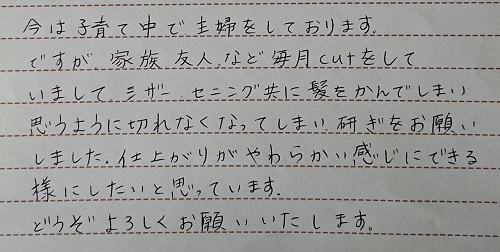 今は子育て中で主婦をしております.
ですが、家族 友人 など 毎月cutをして
いまして、シザー、セニング共に髪をかんでしまい
思うように切れなくなってしまい、研ぎをお願い
しました、仕上がりがやわらかい感じにできる
様にしたいと思っています.
どうぞよろしくお願いいたします。